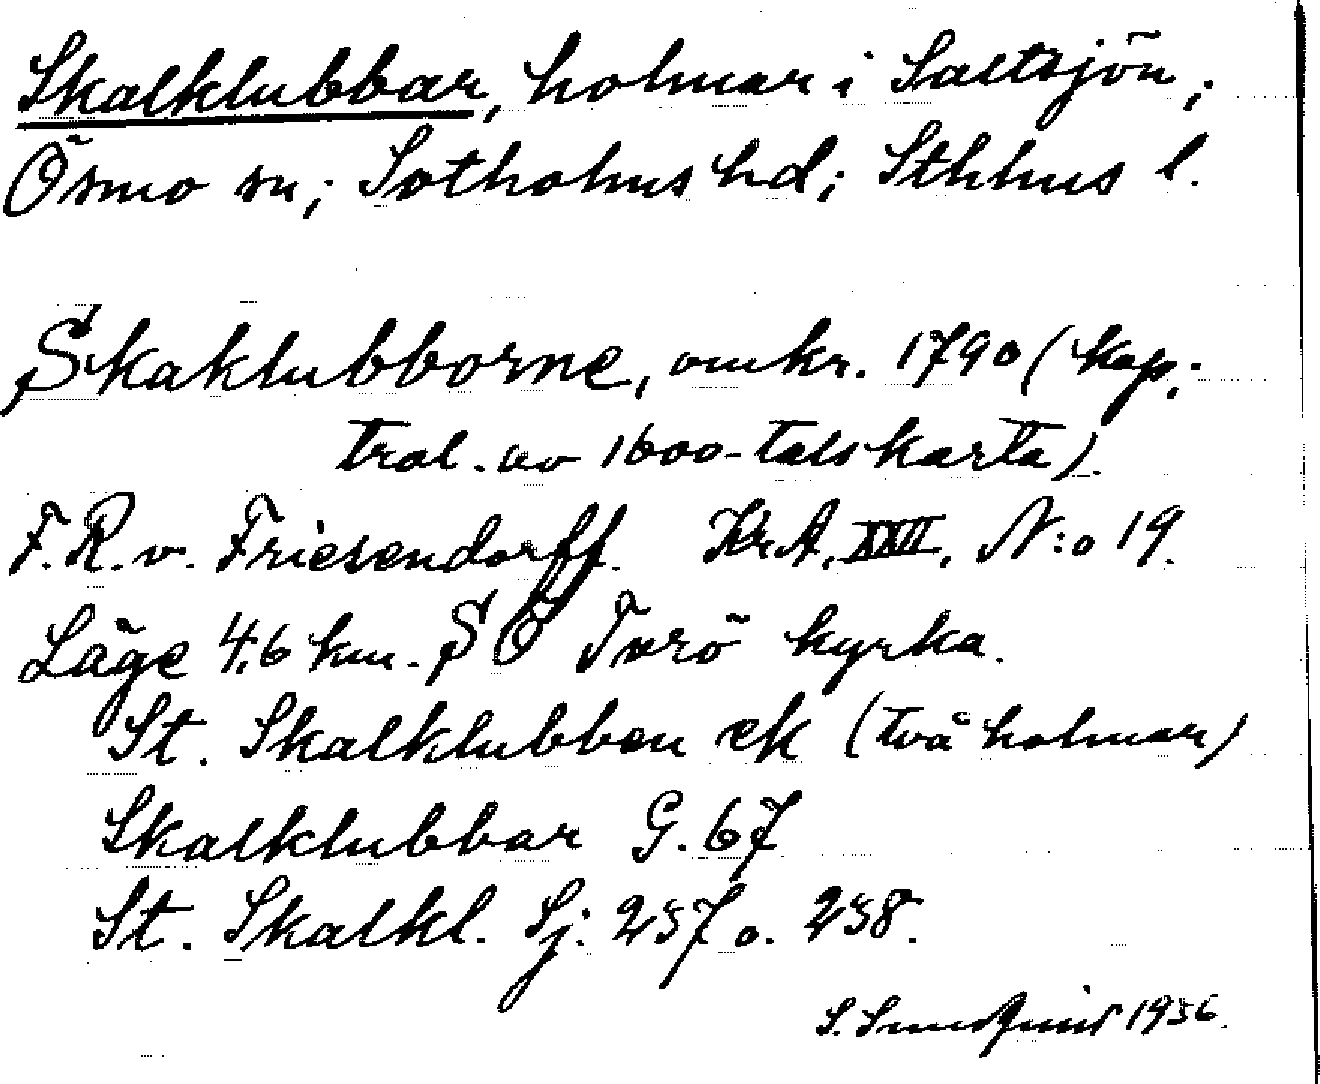 Skalklubbar, holmar i Saltsjön;
Ösmo sn; Sotholms hd; Sthlms l.
Skaklubborne, omkr. 1790 (kop.;
trol. av 1600-talskarta).
F.R. v. Friesendorff. Kr.A. XXII, N:o 19.
Läge 4,6 km. SÖ Torö kyrka.
St. Skalklubben ek (två holmar)
Skalklubbar G. 67
St. Skalkl. Sj. 257 o. 258.
S. Sundquist 1936.